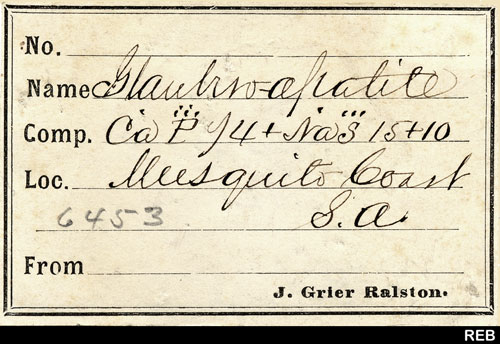 No.
Name Glaubro-apatite
Comp. Ca P 74 + Na S 15+10
Loc. Meesquito Coast
6453 S. A.
From
J. Grier Ralston.
REB